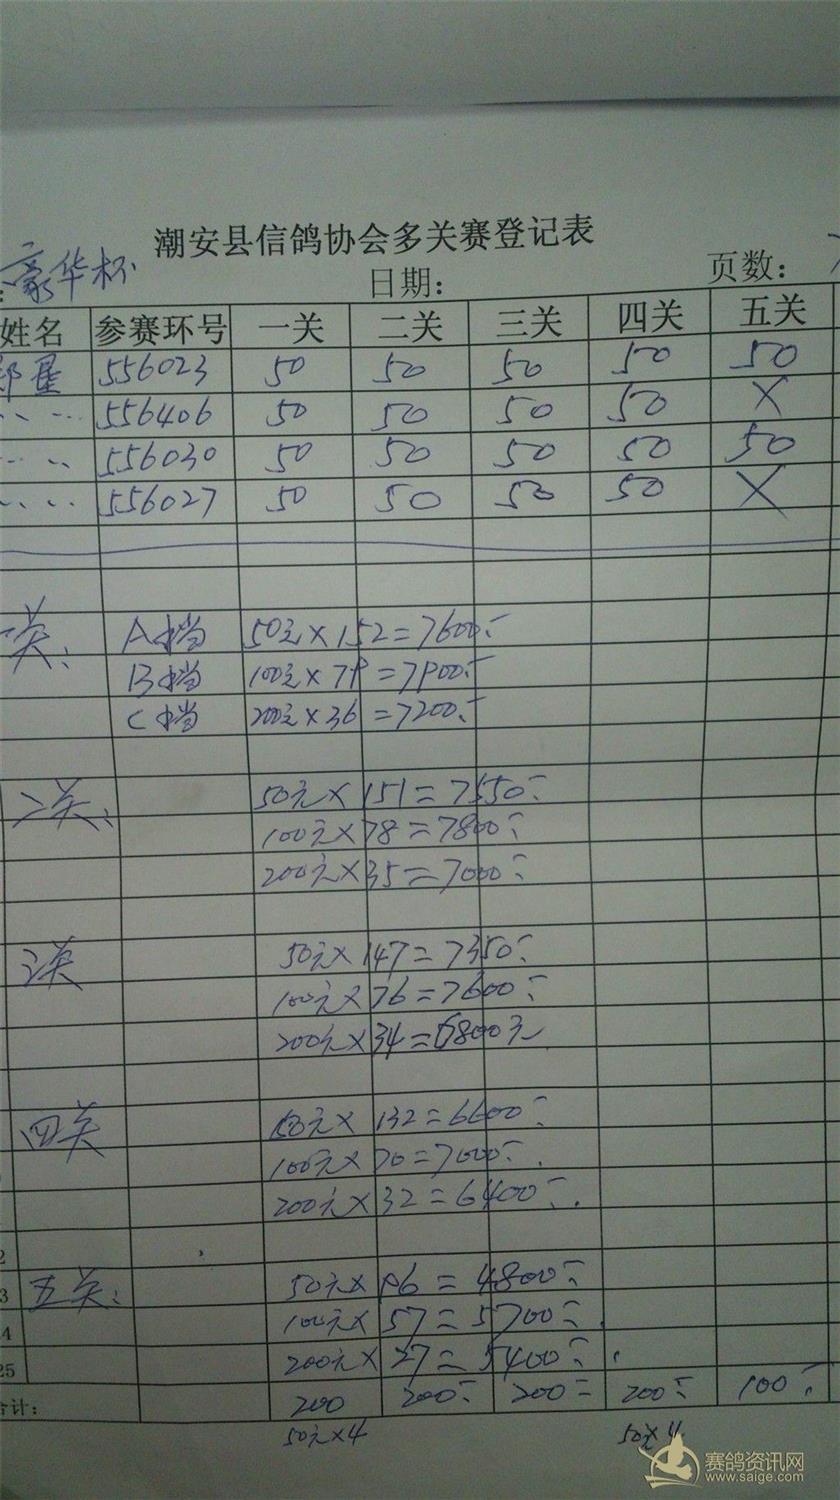 潮安县信鸽协会多关赛登记表
豪华杯 日期： 页数：
姓名 参赛环号 一关 二关 三关 四关 五关
556023 50 50 50 50 50
556406 50 50 50 50 X
556030 50 50 50 50 50
556027 50 50 50 50 X
一关： A挡 50元×152=7600
B挡 100元×79=7900
C挡 200元×36=7200
二关： 50元×151=7550
100元×78=7800
200元×35=7000
三关 50元×147=7350
100元×76=7600
200元×34=6800元
四关 50元×132=6600
100元×70=7000
200元×32=6400
五关： 50元×96=4800
100元×57=5700
25 200元×27=5400
合计： 200 200 200 200 100
50元×4 50元×4
赛鸽资讯网
www.saige.com